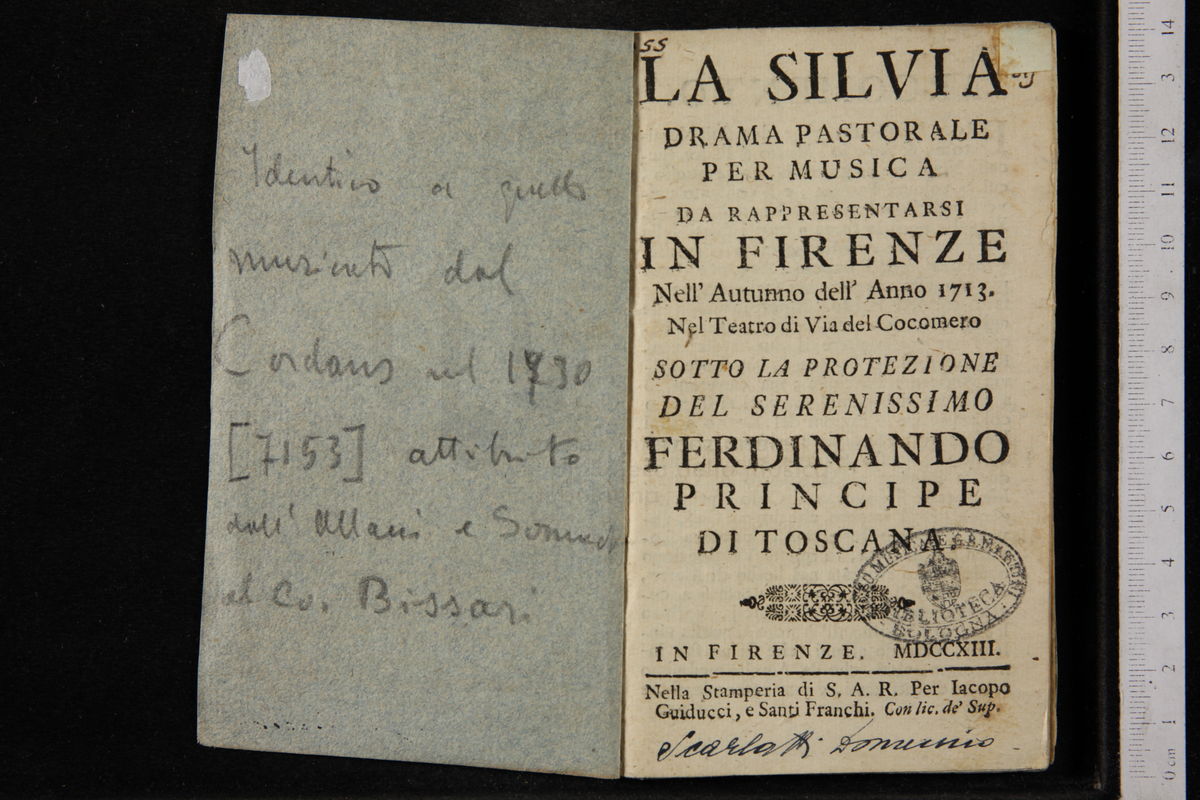 Identico a quello
musicato dal
Cordans nel 1730
[7153] attribuito
dall' Allacci e Sonneck
al Co. Bissari
55
LA SILVIA
DRAMA PASTORALE
PER MUSICA
DA RAPPRESENTARSI
IN FIRENZE
Nell' Autunno dell' Anno 1713.
Nel Teatro di Via del Cocomero
SOTTO LA PROTEZIONE
DEL SERENISSIMO
FERDINANDO
PRINCIPE
DI TOSCANA
BIBLIOTECA
BOLOGNA
IN FIRENZE. MDCCXIII.
Nella Stamperia di S. A. R. Per Iacopo
Guiducci, e Santi Franchi. Con lic. de' Sup.
Scarlatti Domenico
14
3
12
11
10
9
8
7
6
5
4
3
2
1
0 cm